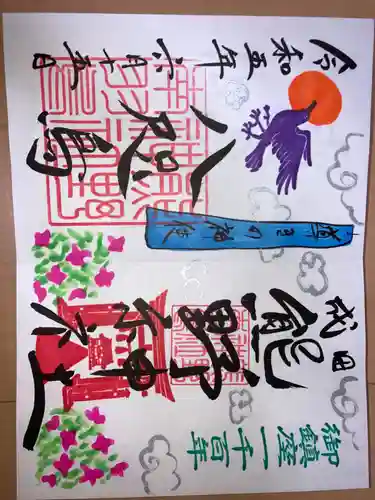 御鎮座一千百年
熊野神社
導きの神使
八咫烏
令和五年六月十五日